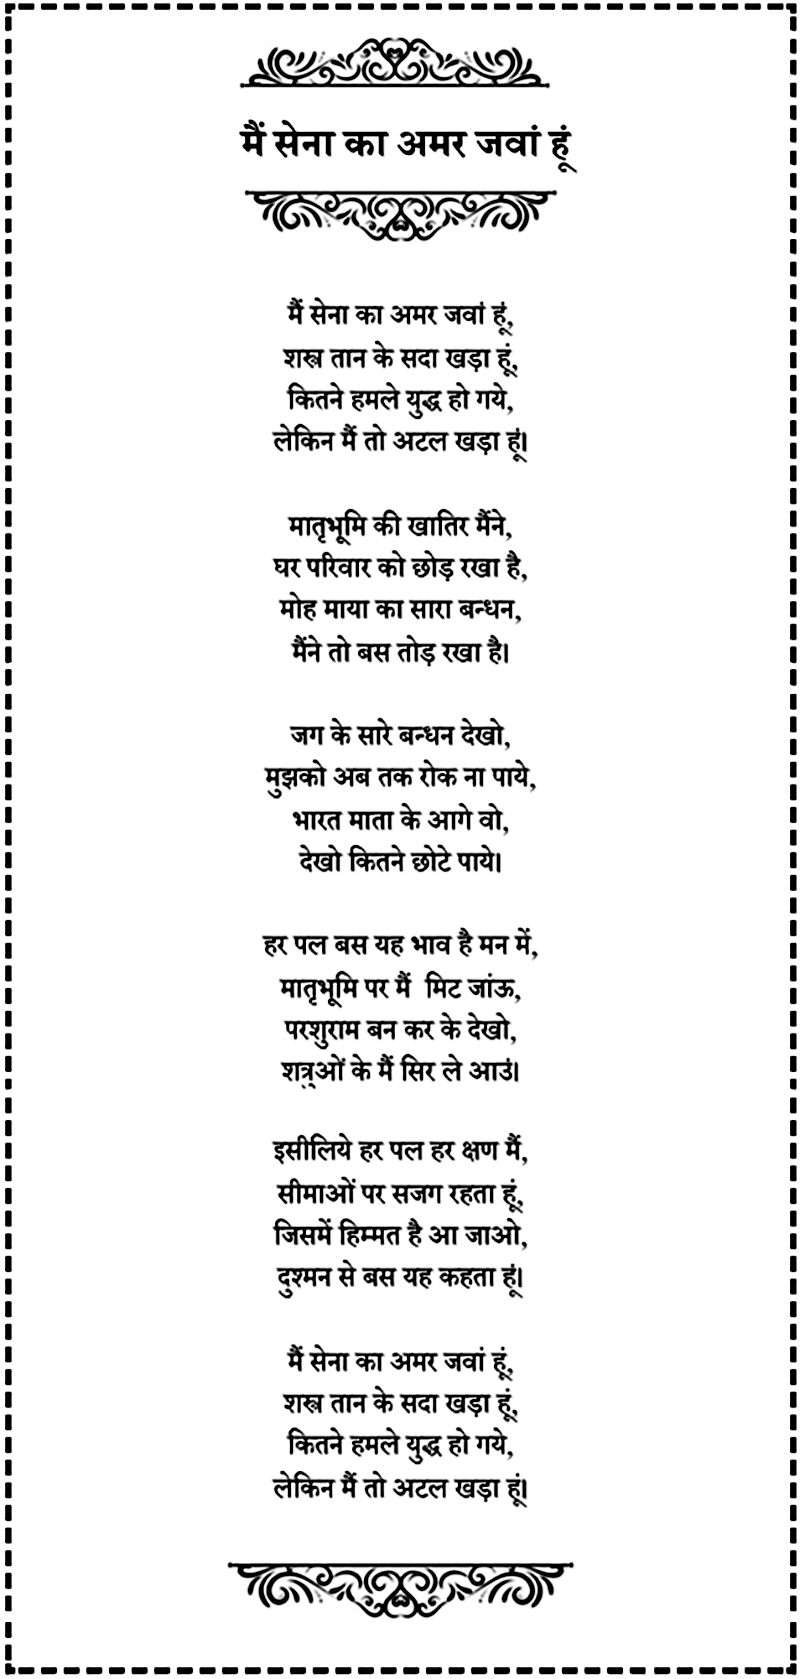 मैं सेना का अमर जवां हूं
मैं सेना का अमर जवां हूं,
शस्त्र तान के सदा खड़ा हूं,
कितने हमले युद्ध हो गये,
लेकिन मैं तो अटल खड़ा हूं।
मातृभूमि की खातिर मैंने,
घर परिवार को छोड़ रखा है,
मोह माया का सारा बन्धन,
मैंने तो बस तोड़ रखा है।
जग के सारे बन्धन देखो,
मुझको अब तक रोक ना पाये,
भारत माता के आगे वो,
देखो कितने छोटे पाये।
हर पल बस यह भाव है मन में,
मातृभूमि पर मैं मिट जांऊ,
परशुराम बन कर के देखो,
शत्रुओं के मैं सिर ले आउं।
इसीलिये हर पल हर क्षण मैं,
सीमाओं पर सजग रहता हूं,
जिसमें हिम्मत है आ जाओ,
दुश्मन से बस यह कहता हूं।
मैं सेना का अमर जवां हूं,
शस्त्र तान के सदा खड़ा हूं,
कितने हमले युद्ध हो गये,
लेकिन मैं तो अटल खड़ा हूं।